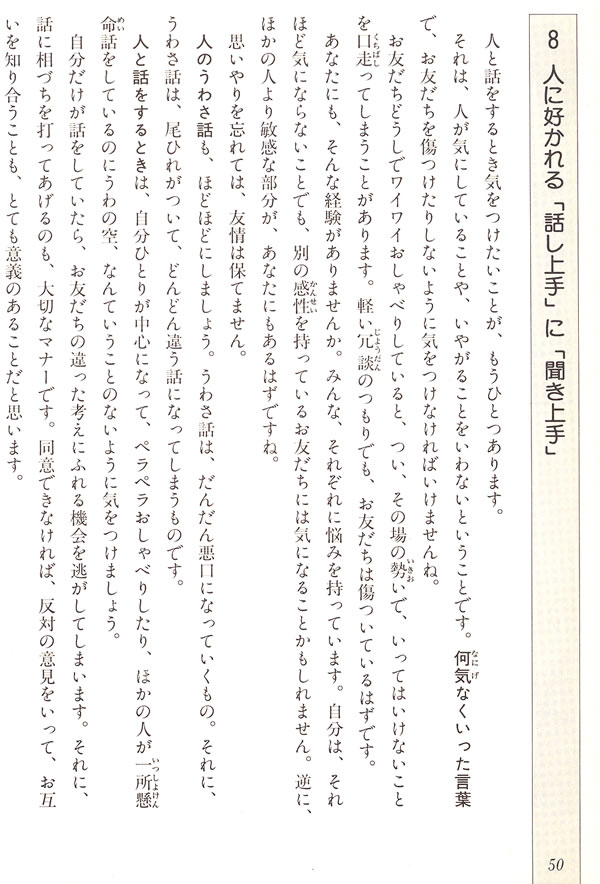 8 人に好かれる「話し上手」に「聞き上手」
人と話をするとき気をつけたいことが、もうひとつあります。
それは、人が気にしていることや、いやがることをいわないということです。何気なくいった言葉
で、お友だちを傷つけたりしないように気をつけなければいけませんね。
お友だちどうしでワイワイおしゃべりしていると、つい、その場の勢いで、いってはいけないこと
を口走ってしまうことがあります。軽い冗談のつもりでも、お友だちは傷ついているはずです。
あなたにも、そんな経験がありませんか。みんな、それぞれに悩みを持っています。自分は、それ
ほど気にならないことでも、別の感性を持っているお友だちには気になることかもしれません。逆に、
ほかの人より敏感な部分が、あなたにもあるはずですね。
思いやりを忘れては、友情は保てません。
人のうわさ話も、ほどほどにしましょう。うわさ話は、だんだん悪口になっていくもの。それに、
うわさ話は、尾ひれがついて、どんどん違う話になってしまうものです。
人と話をするときは、自分ひとりが中心になって、ペラペラおしゃべりしたり、ほかの人が一所懸
命話をしているのにうわの空、なんていうことのないように気をつけましょう。
自分だけが話をしていたら、お友だちの違った考えにふれる機会を逃がしてしまいます。それに、
話に相づちを打ってあげるのも、大切なマナーです。同意できなければ、反対の意見をいって、お互
いを知り合うことも、とても意義のあることだと思います。
50